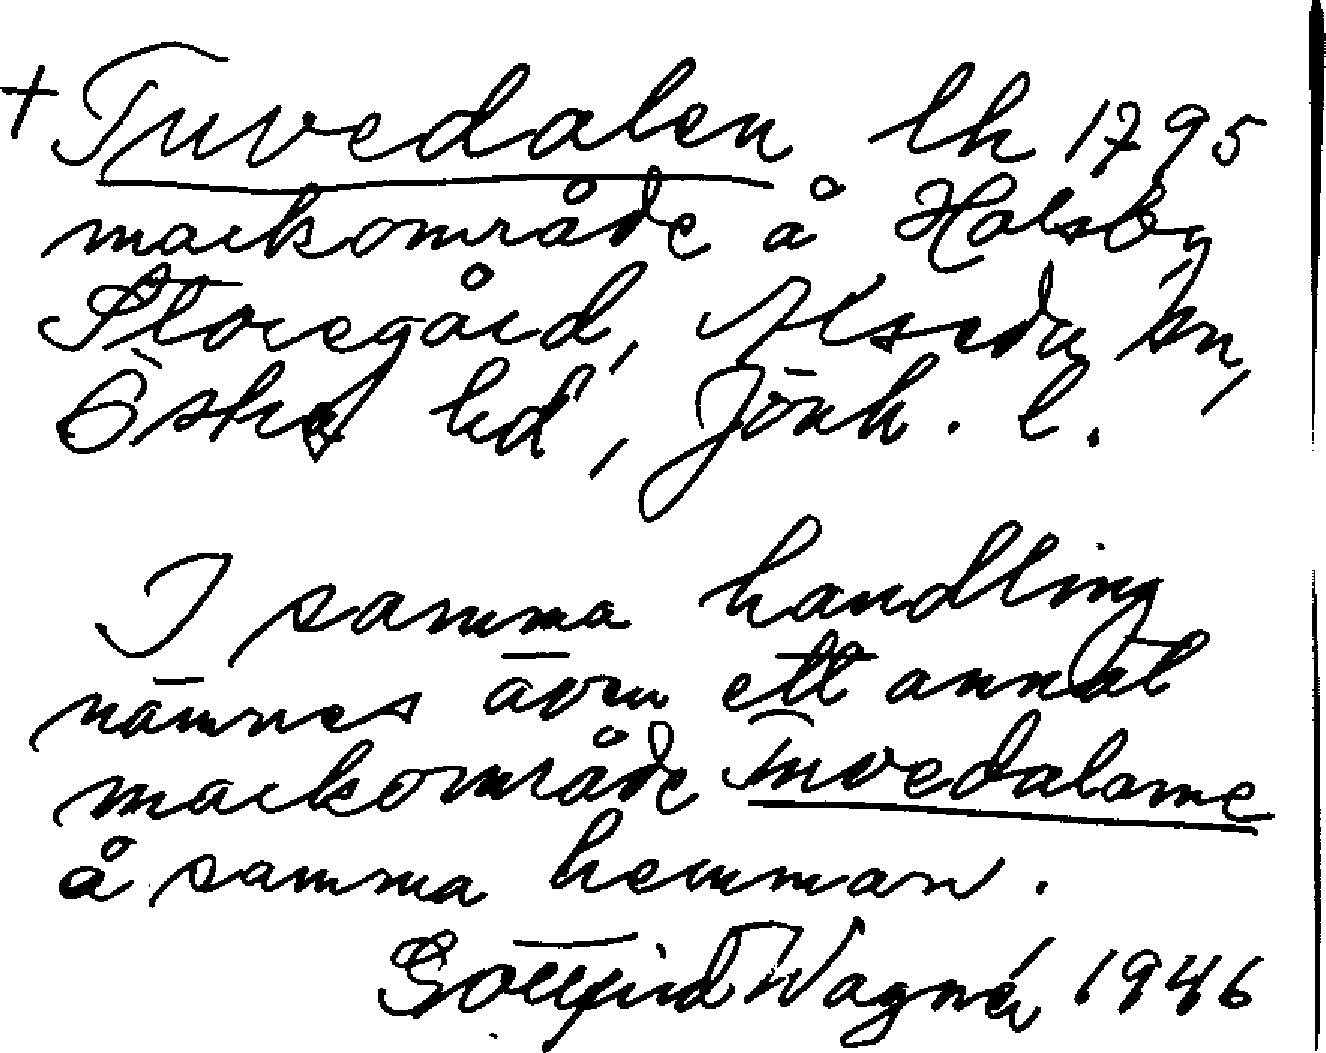 + Tuvedalen lh 1795
markområde å Holsby
Storegård, Alseda sn,
Östra hd, Jönk. l.
I samma handling
nämnes även ett annat
markområde Tuvedalame
å samma hemman.
Gottfrid Wagnér 1946